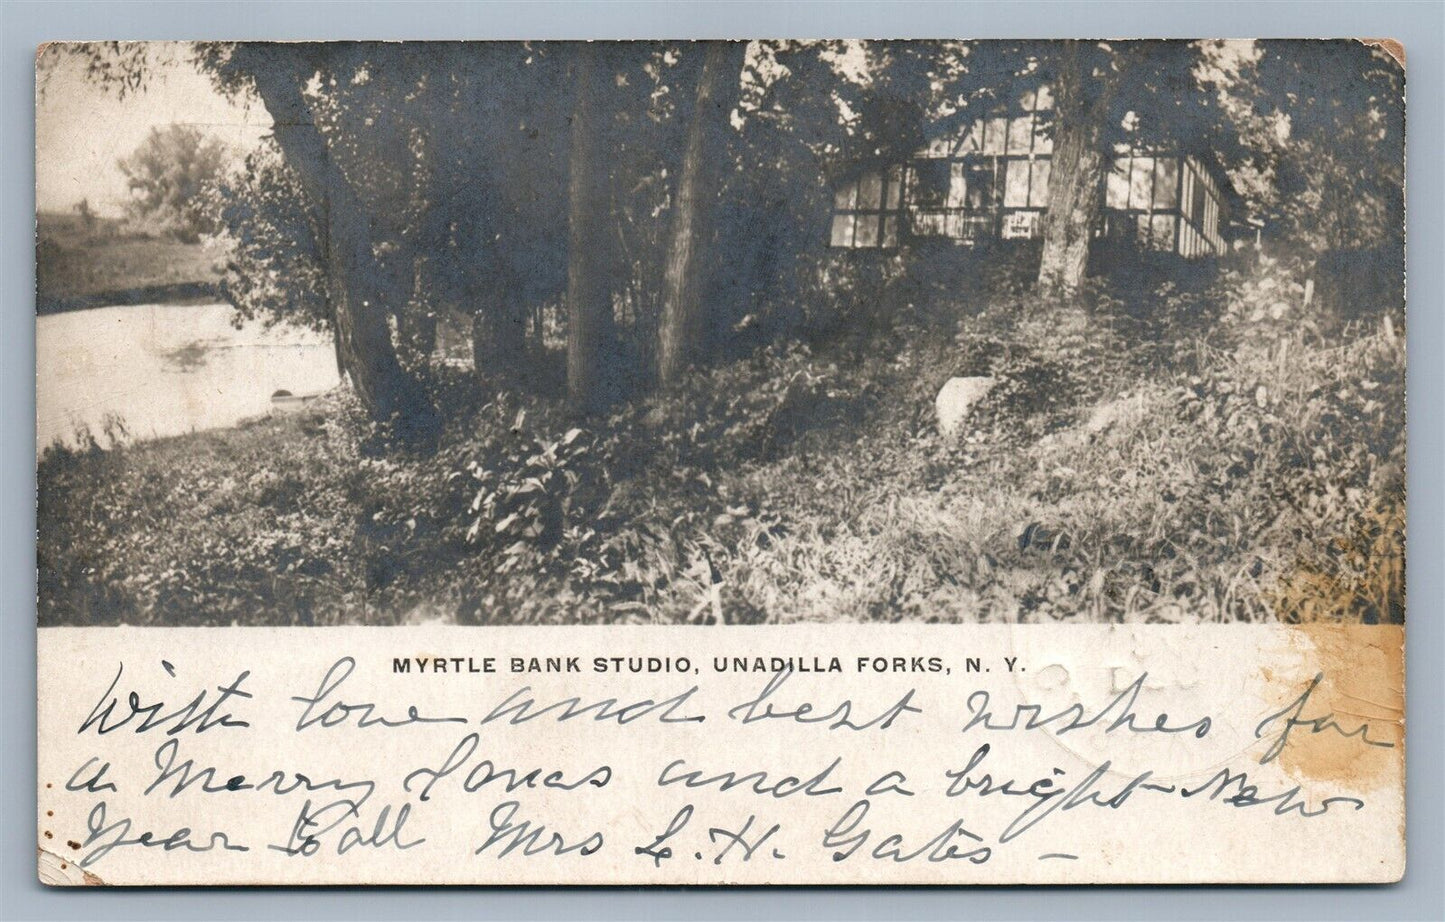 MYRTLE BANK STUDIO, UNADILLA FORKS, N. Y.
With love and best wishes for
a Merry Xmas and a bright New
Year to all Mrs L. H. Gates –